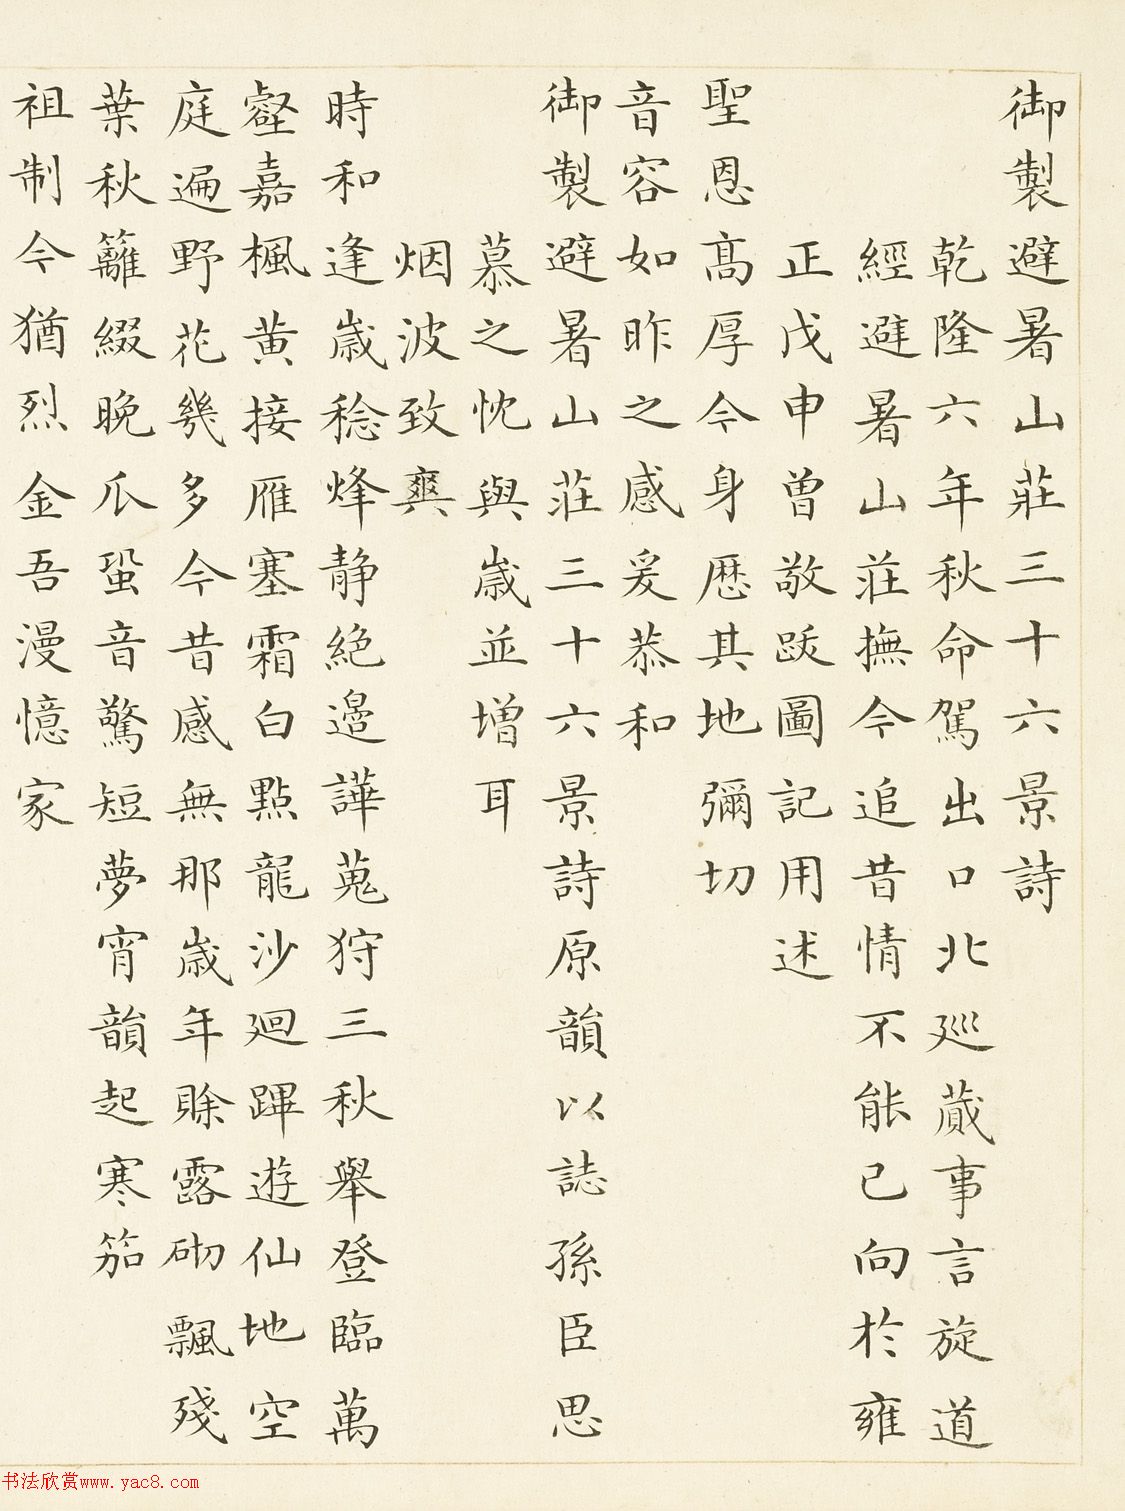 御製避暑山莊三十六景詩
乾隆六年秋命駕出口北巡蕆事言旋道
經避暑山莊撫今追昔情不能已向於雍
正戊申曾敬跋圖記用述
聖恩高厚今身歷其地彌切
音容如昨之感爰恭和
御製避暑山莊三十六景詩原韻以誌孫臣思
慕之忱與歲並增耳
烟波致爽
時和逢歲稔烽靜絕邊譁蒐狩三秋舉登臨萬
壑嘉楓黃接雁塞霜白點龍沙迴蹕遊仙地空
庭遍野花幾多今昔感無那歲年賒露砌飄殘
葉秋籬綴晚瓜蛩音驚短夢宵韻起寒笳
祖制今猶烈金吾漫憶家
书法欣赏www.yac8.com